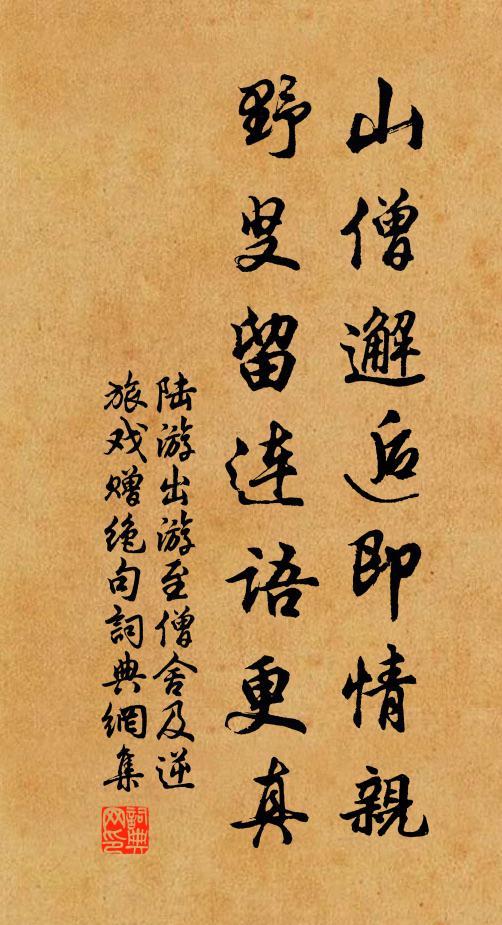 山僧邂逅即情親
野叟留連語更真
陆游出游至僧舍及逆
旅戏赠绝句詞典網集
詞典网印